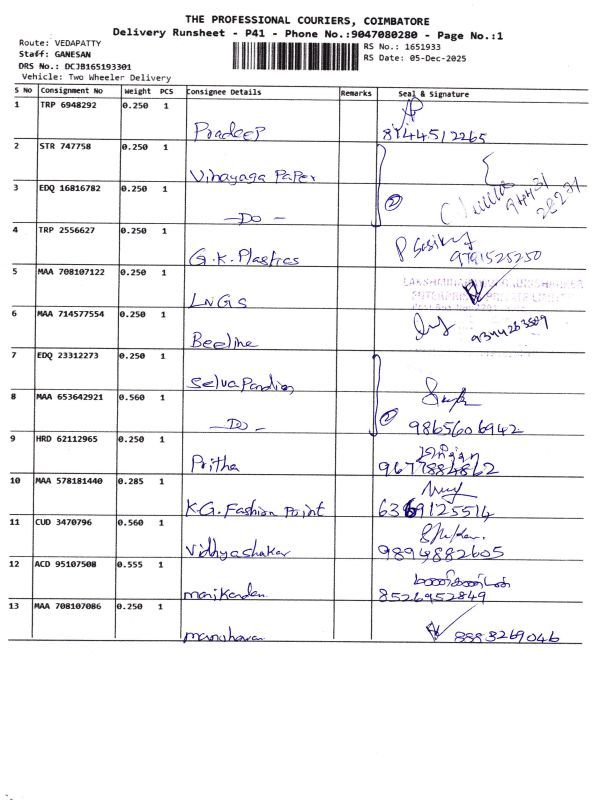 THE PROFESSIONAL COURIERS, COIMBATORE
Delivery Runsheet - P41 - Phone No.:9047080280 - Page No.:1
Route: VEDAPATTY
Staff: GANESAN
DRS No.: DCJB165193301
Vehicle: Two Wheeler Delivery
RS No.: 1651933
RS Date: 05-Dec-2025
S No Consignment No Weight PCS Consignee Details Remarks Seal & Signature
1 TRP 6948292 0.250 1
Pradeep 8144512265
2 STR 747758 0.250 1
Vinayaga Paper
3 EDQ 16816782 0.250 1
-Do- 2 94431 28231
4 TRP 2556627 0.250 1 P Sasi
G.K. Plastics 9791525250
5 MAA 708107122 0.250 1
LNGS
6 MAA 714577554 0.250 1
Beeline 9344263589
7 EDQ 23312273 0.250 1
Selva Pandian
8 MAA 653642921 0.560 1
-Do- 2 9865606942
9 HRD 62112965 0.250 1
Pritha 9677884862
10 MAA 578181440 0.285 1
K.G. Fashion Point 6369125514
11 CUD 3470796 0.560 1
Vidhyashakar 9894882605
12 ACD 95107508 0.555 1
manikandan 8526952849
13 MAA 708107086 0.250 1
manoharan 8883269046